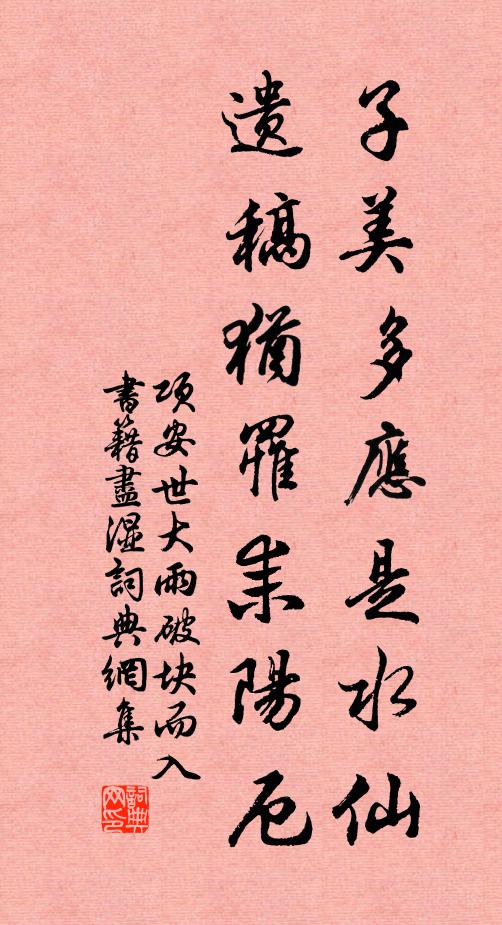 子美多應是水仙
遺稿猶罹耒陽厄
項安世大雨破块而入
書籍盡湿詞典網集
詞典网印